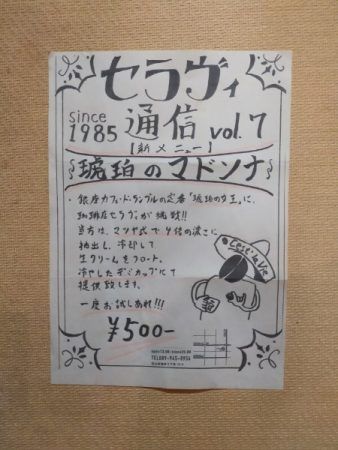 セラヴィ
since
1985
通信 vol.7
【新メニュー】
琥珀のマドンナ
・銀座カフェ・ド・ランブルの定番「琥珀の女王」に、
珈琲店セラヴィが挑戦!!
当方は、マツヤ式で4倍の濃さに
抽出し、冷却して
生クリームをフロート。
冷やしたデミカップにて
提供致します。
一度お試しあれ!!!
C'est la Vie
¥500-